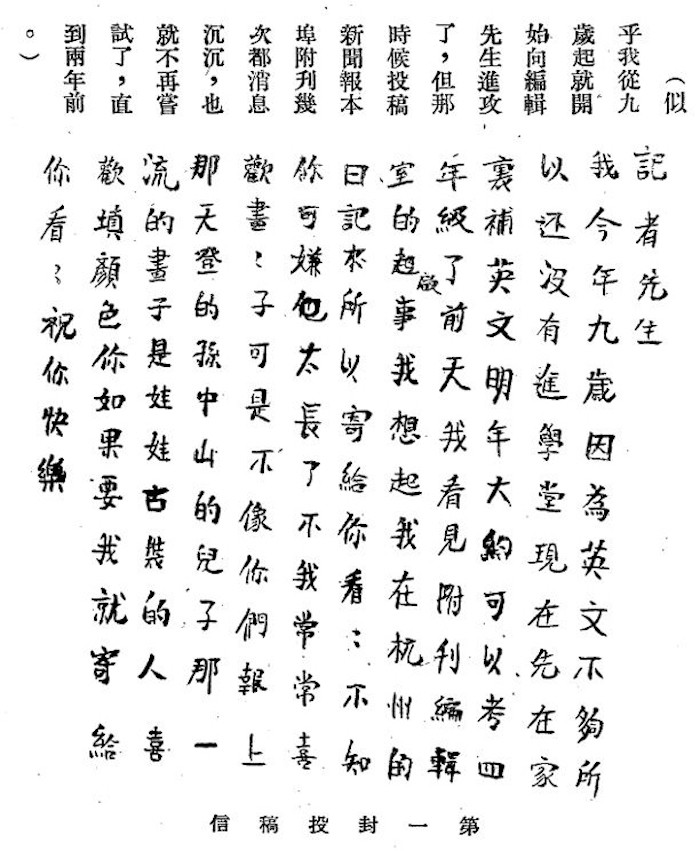 （似
乎我從九
歲起就開
始向編輯
先生進攻
了，但那
時候投稿
新聞報本
埠附刊幾
次都消息
沉沉，也
就不再嘗
試了，直
到兩年前
。）
記者先生
我今年九歲因為英文不夠所
以还沒有進學堂現在先在家
裏補英文明年大約可以考四
年級了前天我看見附刊編輯
室的起啟事我想起我在杭州的
日記來所以寄給你看〻不知
你可嫌他太長了不我常常喜
歡畫〻子可是不像你們報上
那天登的孫中山的兒子那一
流的畫子是娃娃古裝的人喜
歡填顏色你如果要我就寄給
你看〻祝你快樂
第一封投稿信